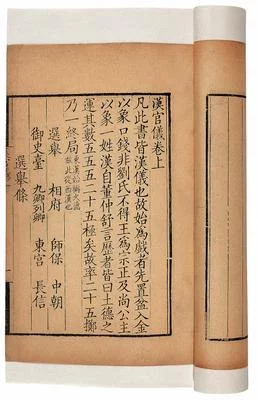 漢官儀卷上
凡此書皆漢儀也故始為戲者先置盆入金
以象口錢非劉氏不得王為宗正及尚公主
以象一姓漢自董仲舒言歷者皆曰土德之
運其數五五五二十五極矣故率二十五擲
乃一終局
東漢稱火
故此從西漢也
選舉 相府 師保 中朝
御史臺 九卿列卿 東宮 長信
選舉條